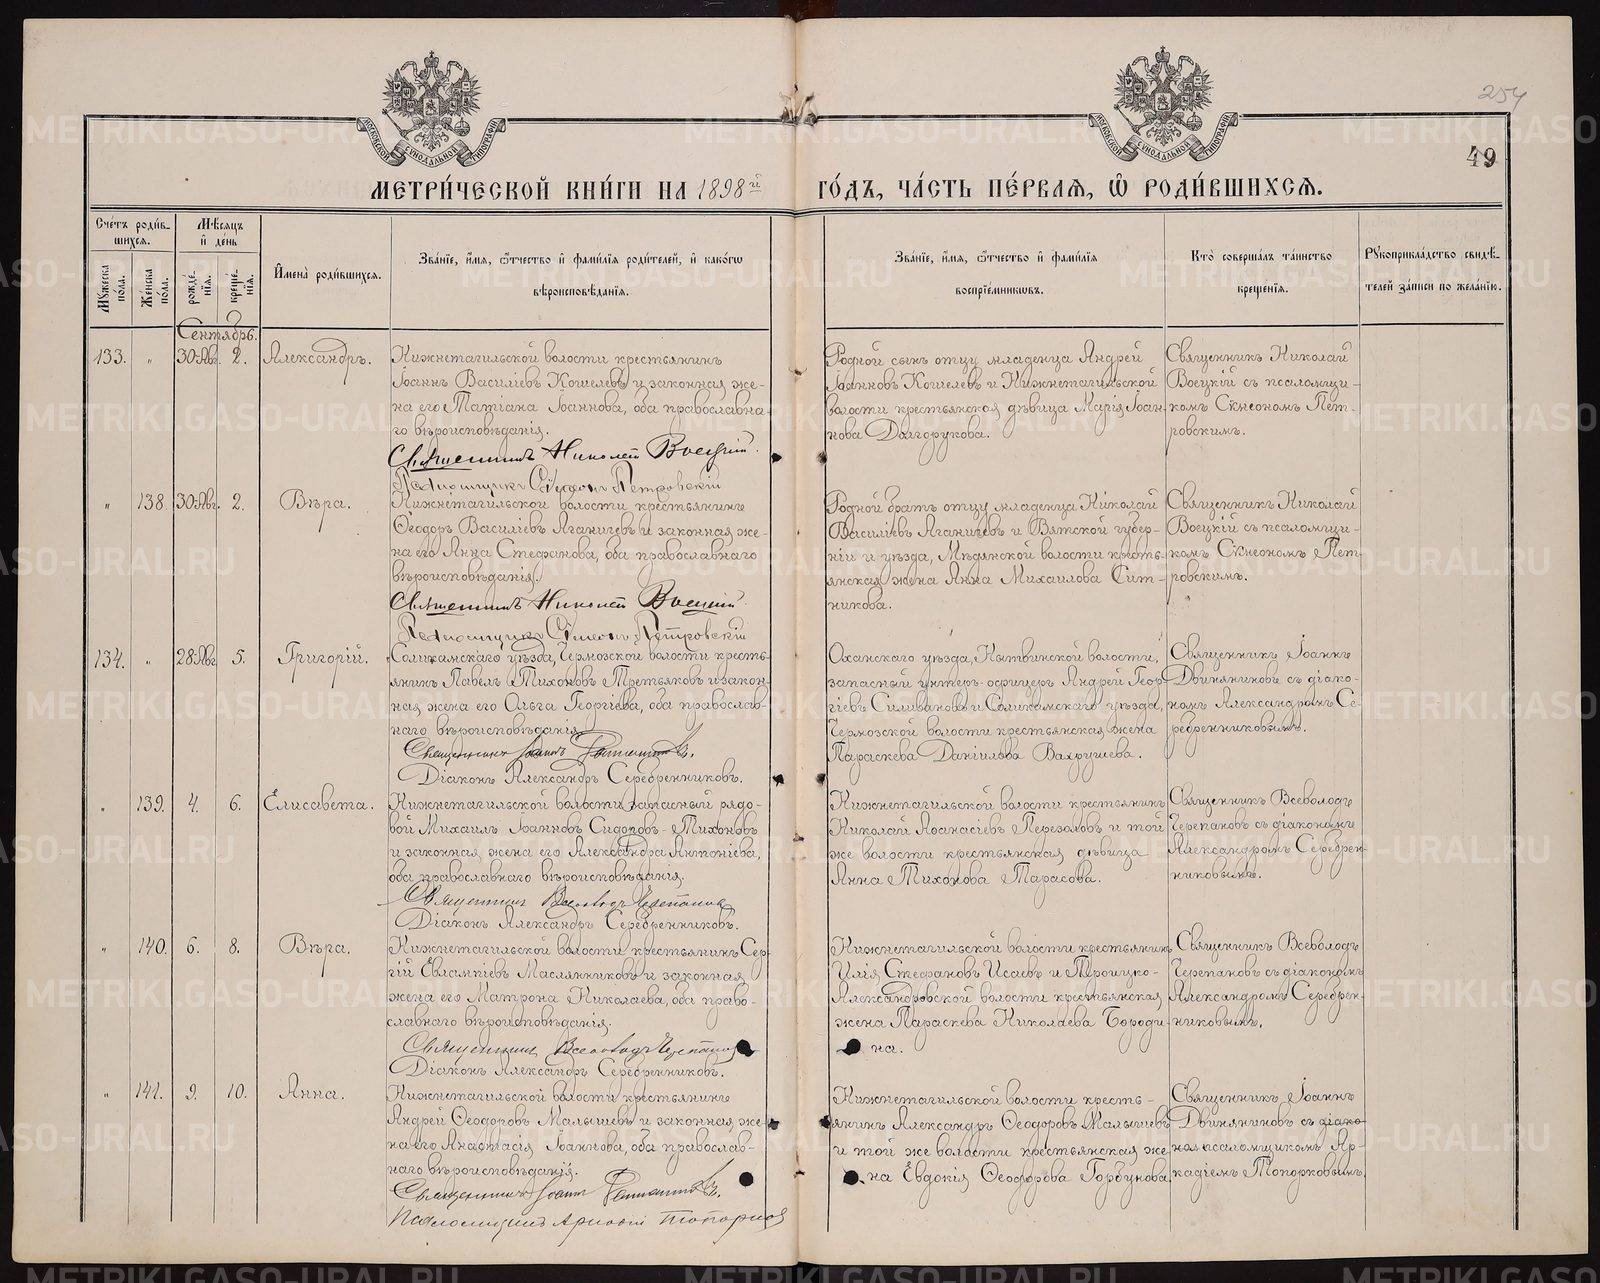 254
49
МЕТРИ́ЧЕСКОЙ КНИ́ГИ НА 1898й ГО́ДЪ, ЧА́СТЬ ПЕ́РВАЯ, Ѿ РОДИ́ВШИХСЯ.
Сче́тъ роди́в-
шихся.
Мѣсяцъ
и де́нь
Му́жеска по́ла.
Же́нска по́ла.
рожде́-
нїя.
креще́-
нїя.
Имена̀ роди́вшихся.
Зва́нїе, и́мя, ѻ́тчество и фами́лїя роди́телей, и како́гѡ
вѣроисповѣ́данїя.
Зва́нїе, и́мя, ѻ́тчество и фами́лїя
воспрїе́мникѡвъ.
Кто̀ соверша́лъ та́инство
креще́нїя.
Рукоприкла́дство свидѣ́-
телей за́писи по жела́нїю.
Сентябрь.
133. „ 30 Авг. 2. Александръ.
Нижнетагильской волости крестьянинъ
Іоаннъ Василіевъ Кошелевъ и законная же-
на его Татіана Іоаннова, оба православна-
го вѣроисповѣданія.
Священникъ Николай Воецкій.
Псаломщикъ Симеонъ Петровскій
Родной сынъ отцу младенца Андрей
Іоанновъ Кошелевъ и Нижнетагильской
волости крестьянская дѣвица Марія Іоан-
нова Долгорукова.
Священникъ Николай
Воецкій съ псаломщи-
комъ Симеономъ Пет-
ровскимъ.
„ 138. 30 Авг. 2. Вѣра.
Нижнетагильской волости крестьянинъ
Ѳеодоръ Василіевъ Аганичевъ и законная же-
на его Анна Стефанова, оба православнаго
вѣроисповѣданія.
Священникъ Николай Воецкій.
Псаломщикъ Симеонъ Петровскій
Родной братъ отцу младенца Николай
Василіевъ Аганичевъ и Вятской губер-
ніи и уѣзда, Мѣдянской волости кресть-
янская жена Анна Михаилова Сит-
никова.
Священникъ Николай
Воецкій съ псаломщи-
комъ Симеономъ Пет-
ровскимъ.
134. „ 28 Авг. 5. Григорій.
Соликамскаго уѣзда, Чермозской волости кресть-
янинъ Павелъ Тихоновъ Третьяковъ и закон-
ная жена его Ольга Георгіева, оба православ-
наго вѣроисповѣданія.
Священникъ Іоаннъ
Діаконъ Александръ Серебренниковъ.
Оханскаго уѣзда, Нытвинской волости,
запасный унтеръ-офицеръ Андрей Геор-
гіевъ Силивановъ и Соликамскаго уѣзда,
Чермозской волости крестьянская жена
Параскева Даніилова Вахрушева.
Священникъ Іоаннъ
Двиняниновъ съ діако-
номъ Александромъ Се-
ребренниковымъ.
„ 139. 4. 6. Елисавета.
Нижнетагильской волости запасный рядо-
вой Михаилъ Іоанновъ Сидоровъ-Тихоновъ
и законная жена его Александра Антоніева,
оба православнаго вѣроисповѣданія.
Священникъ Всеволодъ Черепановъ
Діаконъ Александръ Серебренниковъ.
Нижнетагильской волости крестьянинъ
Николай Аѳанасіевъ Перезоловъ и той
же волости крестьянская дѣвица
Анна Тихонова Тарасова.
Священникъ Всеволодъ
Черепановъ съ діакономъ
Александромъ Серебрен-
никовымъ.
„ 140. 6. 8. Вѣра.
Нижнетагильской волости крестьянинъ Сер-
гій Евлампіевъ Маслянниковъ и законная
жена его Матрона Николаева, оба право-
славнаго вѣроисповѣданія.
Священникъ Всеволодъ Черепановъ
Діаконъ Александръ Серебренниковъ.
Нижнетагильской волости крестьянинъ
Илія Стефановъ Исаевъ и Троицко-
Александровской волости крестьянская
жена Параскева Николаева Бороди-
на.
Священникъ Всеволодъ
Черепановъ съ діакономъ
Александромъ Серебрен-
никовымъ.
„ 141. 9. 10. Анна.
Нижнетагильской волости крестьянинъ
Андрей Ѳеодоровъ Малышевъ и законная же-
на его Анастасія Іоаннова, оба православ-
наго вѣроисповѣданія.
Священникъ Іоаннъ
Псаломщикъ Аркадій Топорковъ
Нижнетагильской волости кресть-
янинъ Александръ Ѳеодоровъ Малышевъ
и той же волости крестьянская же-
на Евдокія Ѳеодорова Горбунова.
Священникъ Іоаннъ
Двиняниновъ съ діако-
псаломщикомъ Ар-
кадіемъ Топорковымъ.
METRIKI.GASO-URAL.RU